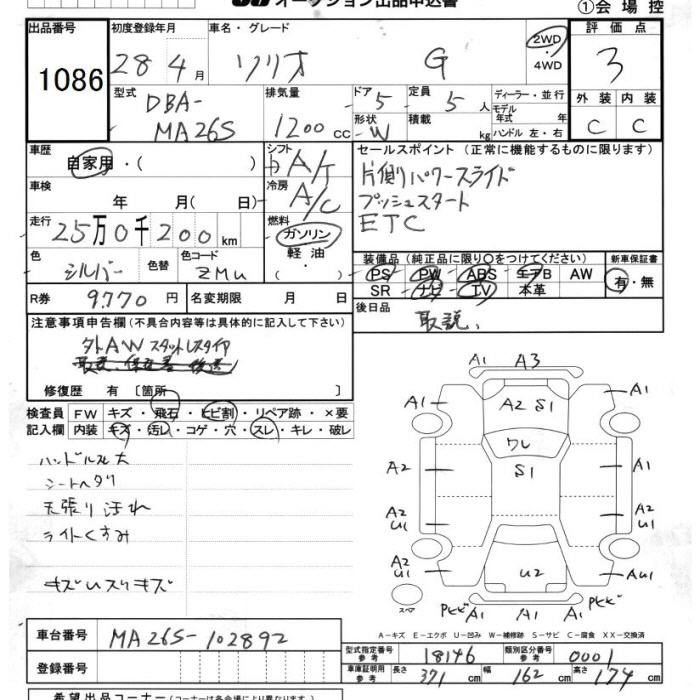 オークション出品申込書
①会場控
出品番号 1086
初度登録年月 28 4月
車名・グレード ソリオ G
2WD・4WD
評価点 3
型式 DBA-MA26S
排気量 1200cc
ドア 5
形状 W
定員 5人
積載 kg
ディーラー・並行
モデル年式 年式
ハンドル 左・右
外装 C
内装 C
車歴 自家用・( )
シフト A/T
セールスポイント(正常に機能するものに限ります)
片側パワースライド
プッシュスタート
ETC
車検 年 月( 日)
冷房 A/C
走行 25万0千200km
燃料 ガソリン 軽油 ・( )
色 シルバー 色替
色コード ZMU
装備品(純正品に限り〇をつけてください)
PS PW ABS エアB AW
SR ナビ TV 本革
新車保証書 有・無
R券 9770円
名変期限 月 日
後日品 取説、
注意事項申告欄(不具合内容等は具体的に記入して下さい)
外AWスタットレスタイヤ
修復歴 有 〔箇所
検査員記入欄
FW キズ・飛石・ヒビ割・リペア跡・×要
内装 キズ・汚れ・コゲ・穴・スレ・キレ・破レ
ハンドルスレ大
シートヘタリ
天張り汚れ
ライトくすみ
キズUスリキズ
A1 A3
A1 A2 S1 A1
ワレ
A2 S1 A1
A2 U1 A2 U1
A2 U1 U2 AU1
スペア PヒビA1 A1 Pヒビ
A-キズ E-エクボ U-凹み W-補修跡 S-サビ C-腐食 XX-交換済
車台番号 MA26S-102892
登録番号
型式指定番号参考 18146
類別区分番号参考 0001
車庫証明用参考 長さ 371cm 幅 162cm 高さ 174cm
希望出品コーナー(コーナーは各会場により異なります)